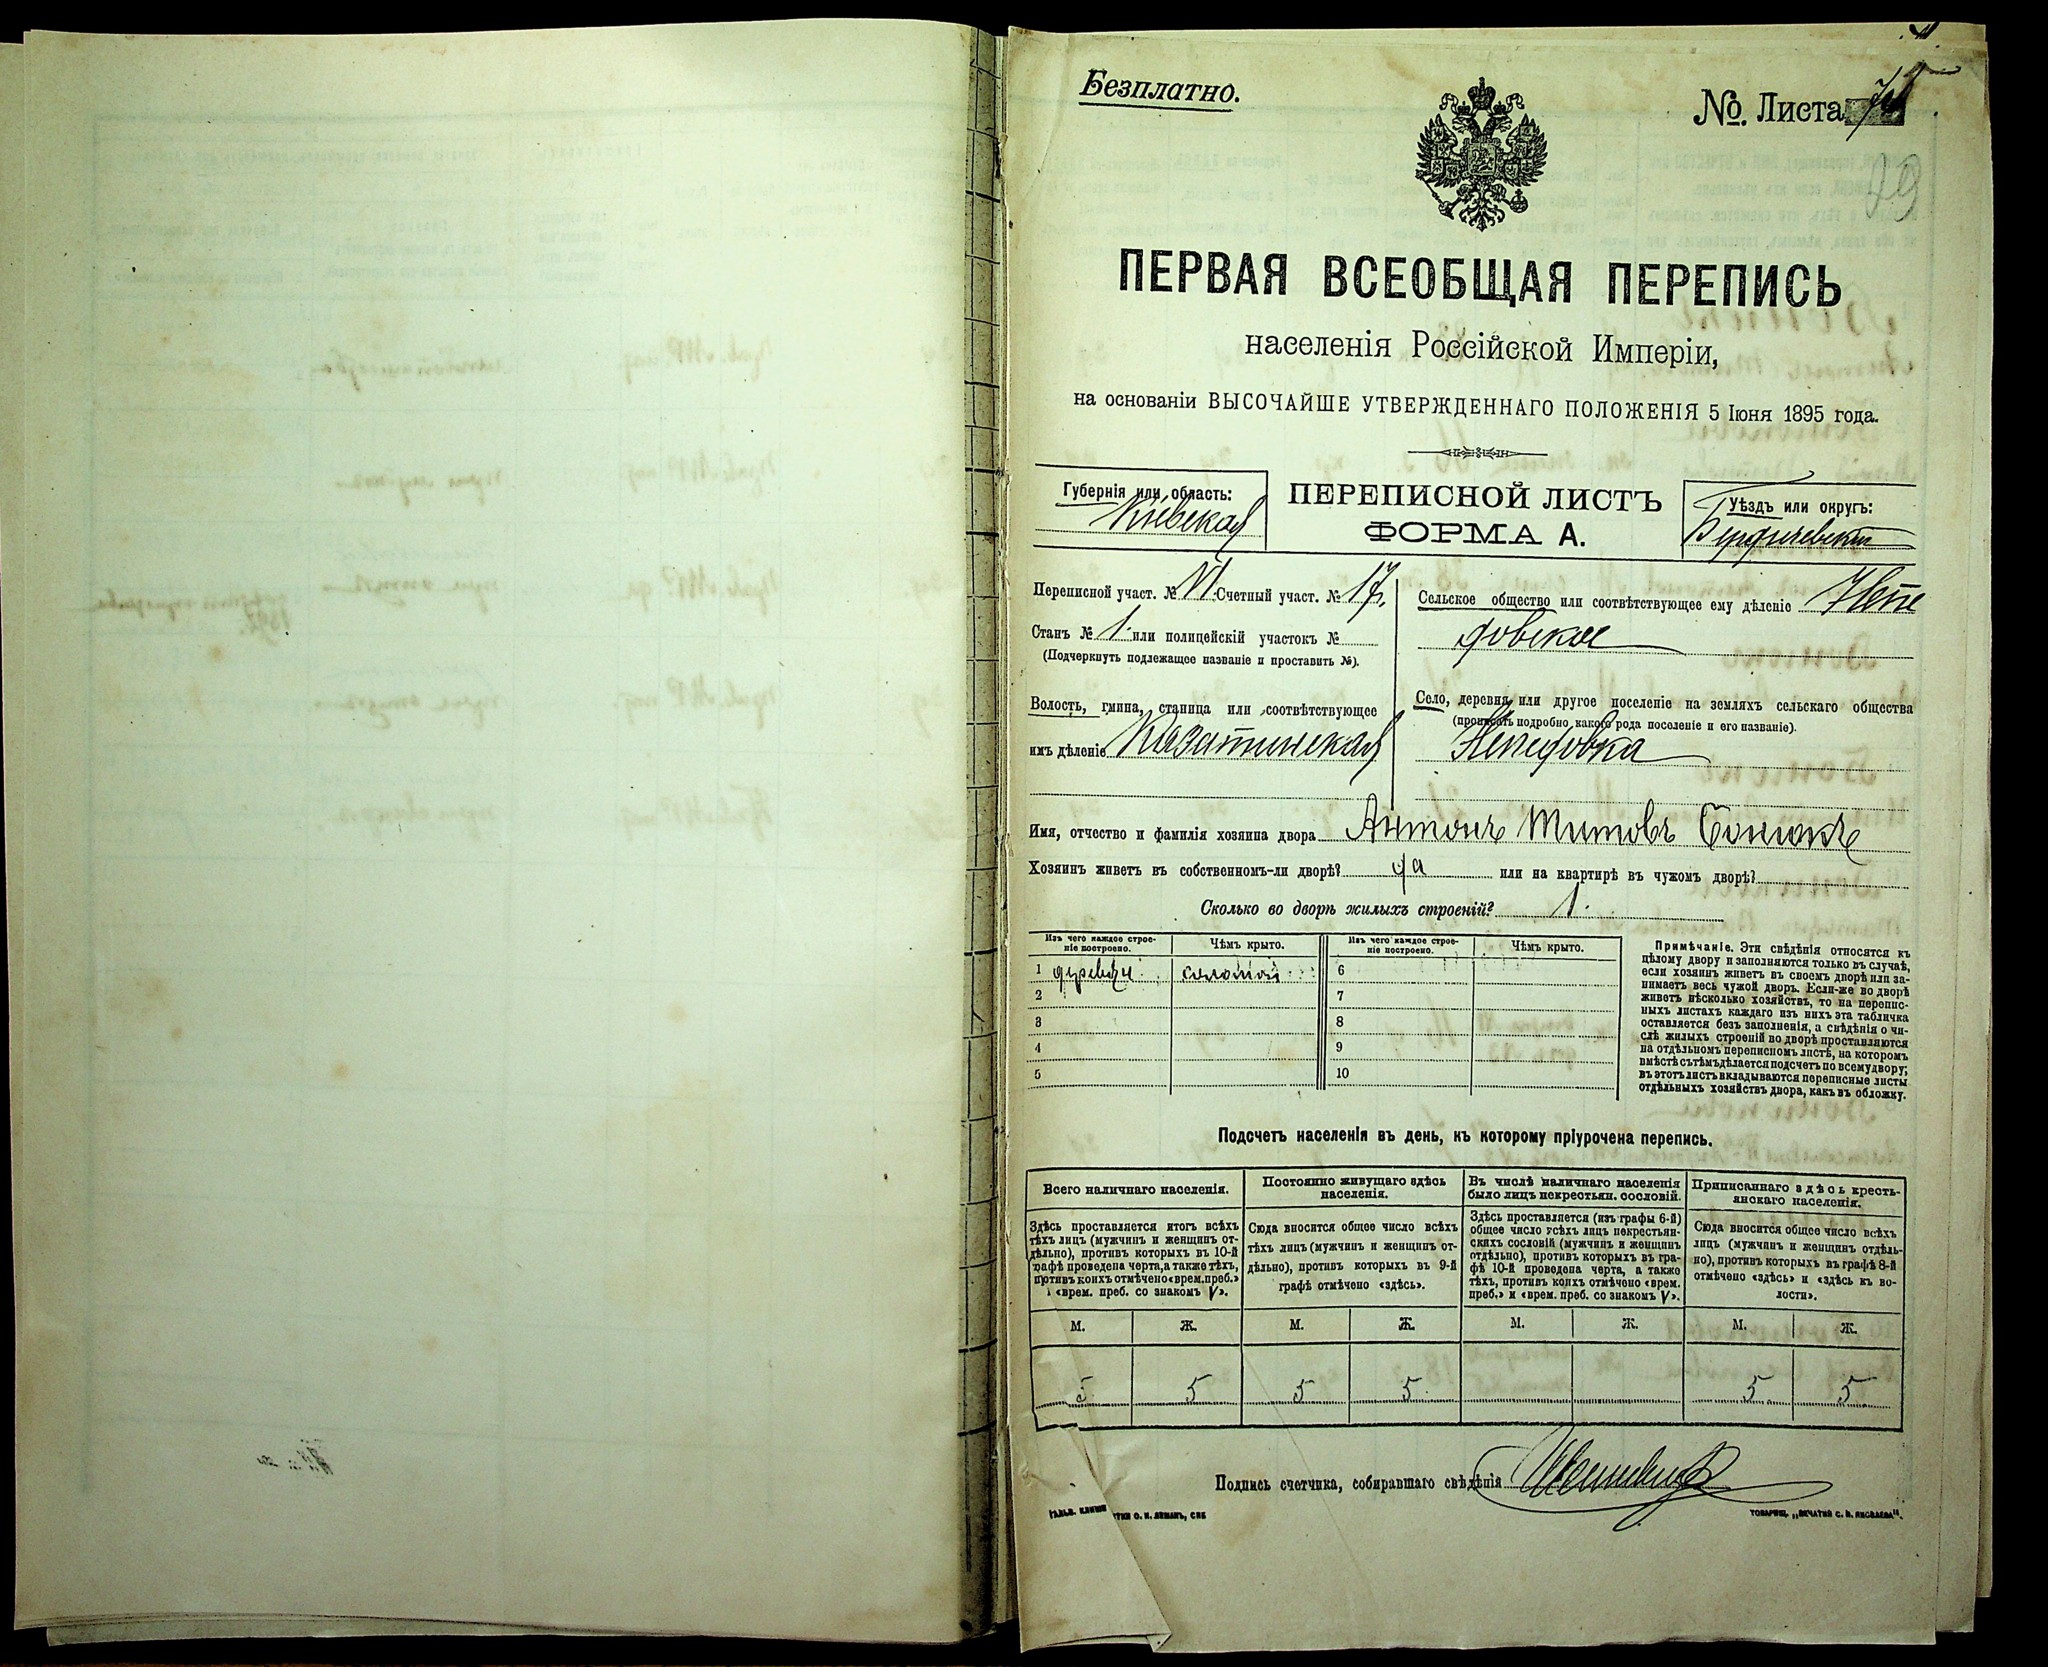 Безплатно.
№. Листа
99
ПЕРВАЯ ВСЕОБЩАЯ ПЕРЕПИСЬ
населенія Россійской Имперіи,
на основаніи ВЫСОЧАЙШЕ УТВЕРЖДЕННАГО ПОЛОЖЕНІЯ 5 Іюня 1895 года.
Губернія или область:
Кіевская
ПЕРЕПИСНОЙ ЛИСТЪ
ФОРМА А.
Уѣздъ или округъ:
Бердичевскій
Переписной участ. № VI. Счетный участ. № 17.
Станъ № 1. или полицейскій участокъ №
(Подчеркнуть подлежащее названіе и проставить №).
Волость, гмина, станица или соотвѣтствующее
имъ дѣленіе Казатинская
Сельское общество или соотвѣтствующее ему дѣленіе Непе
довское
Село, деревня или другое поселеніе на земляхъ сельскаго общества
(прописать подробно, какого рода поселеніе и его названіе).
Непедовка
Имя, отчество и фамилія хозяина двора Антонъ Титовъ Бонюкъ
Хозяинъ живетъ въ собственномъ-ли дворѣ? да или на квартирѣ въ чужомъ дворѣ?
Сколько во дворѣ жилыхъ строеній? 1.
Изъ чего каждое строе-
ніе построено.
Чѣмъ крыто.
Изъ чего каждое строе-
ніе построено.
Чѣмъ крыто.
1 соломой 6
2 7
3 8
4 9
5 10
Примѣчаніе. Эти свѣдѣнія относятся къ
цѣлому двору и заполняются только въ случаѣ,
если хозяинъ живетъ въ своемъ дворѣ или за-
нимаетъ весь чужой дворъ. Если-же во дворѣ
живетъ нѣсколько хозяйствъ, то на перепис-
ныхъ листахъ каждаго изъ нихъ эта табличка
оставляется безъ заполненія, а свѣдѣнія о чи-
слѣ жилыхъ строеній во дворѣ проставляются
на отдѣльномъ переписномъ листѣ, на которомъ
вмѣстѣ съ тѣмъ дѣлается подсчетъ по всему двору;
въ этотъ листъ вкладываются переписные листы
отдѣльныхъ хозяйствъ двора, какъ въ обложку.
Подсчетъ населенія въ день, къ которому пріурочена перепись.
Всего наличнаго населенія.
Здѣсь проставляется итогъ всѣхъ
тѣхъ лицъ (мужчинъ и женщинъ от-
дѣльно), противъ которыхъ въ 10-й
графѣ проведена черта, а также тѣхъ,
противъ коихъ отмѣчено «врем. преб.»
и «врем. преб. со знакомъ V».
Постоянно живущаго здѣсь
населенія.
Сюда вносится общее число всѣхъ
тѣхъ лицъ (мужчинъ и женщинъ от-
дѣльно), противъ которыхъ въ 9-й
графѣ отмѣчено «здѣсь».
Въ числѣ наличнаго населенія
было лицъ некрестьян. сословій.
Здѣсь проставляется (изъ графы 6-й)
общее число всѣхъ лицъ некрестьян-
скихъ сословій (мужчинъ и женщинъ
отдѣльно), противъ которыхъ въ гра-
фѣ 10-й проведена черта, а также
тѣхъ, противъ коихъ отмѣчено «врем.
преб.» и «врем. преб. со знакомъ V».
Приписаннаго здѣсь кресть-
янскаго населенія.
Сюда вносится общее число всѣхъ
лицъ (мужчинъ и женщинъ отдѣль-
но), противъ которыхъ въ графѣ 8-й
отмѣчено «здѣсь» и «здѣсь къ во-
лости».
М. Ж. М. Ж. М. Ж. М. Ж.
5 5 5 5 5 5
Подпись счетчика, собиравшаго свѣдѣнія
О. И. ЛЕМАНЪ, СПБ
ТОВАРИЩ. „ПЕЧАТНЯ С. П. ЯКОВЛЕВА".